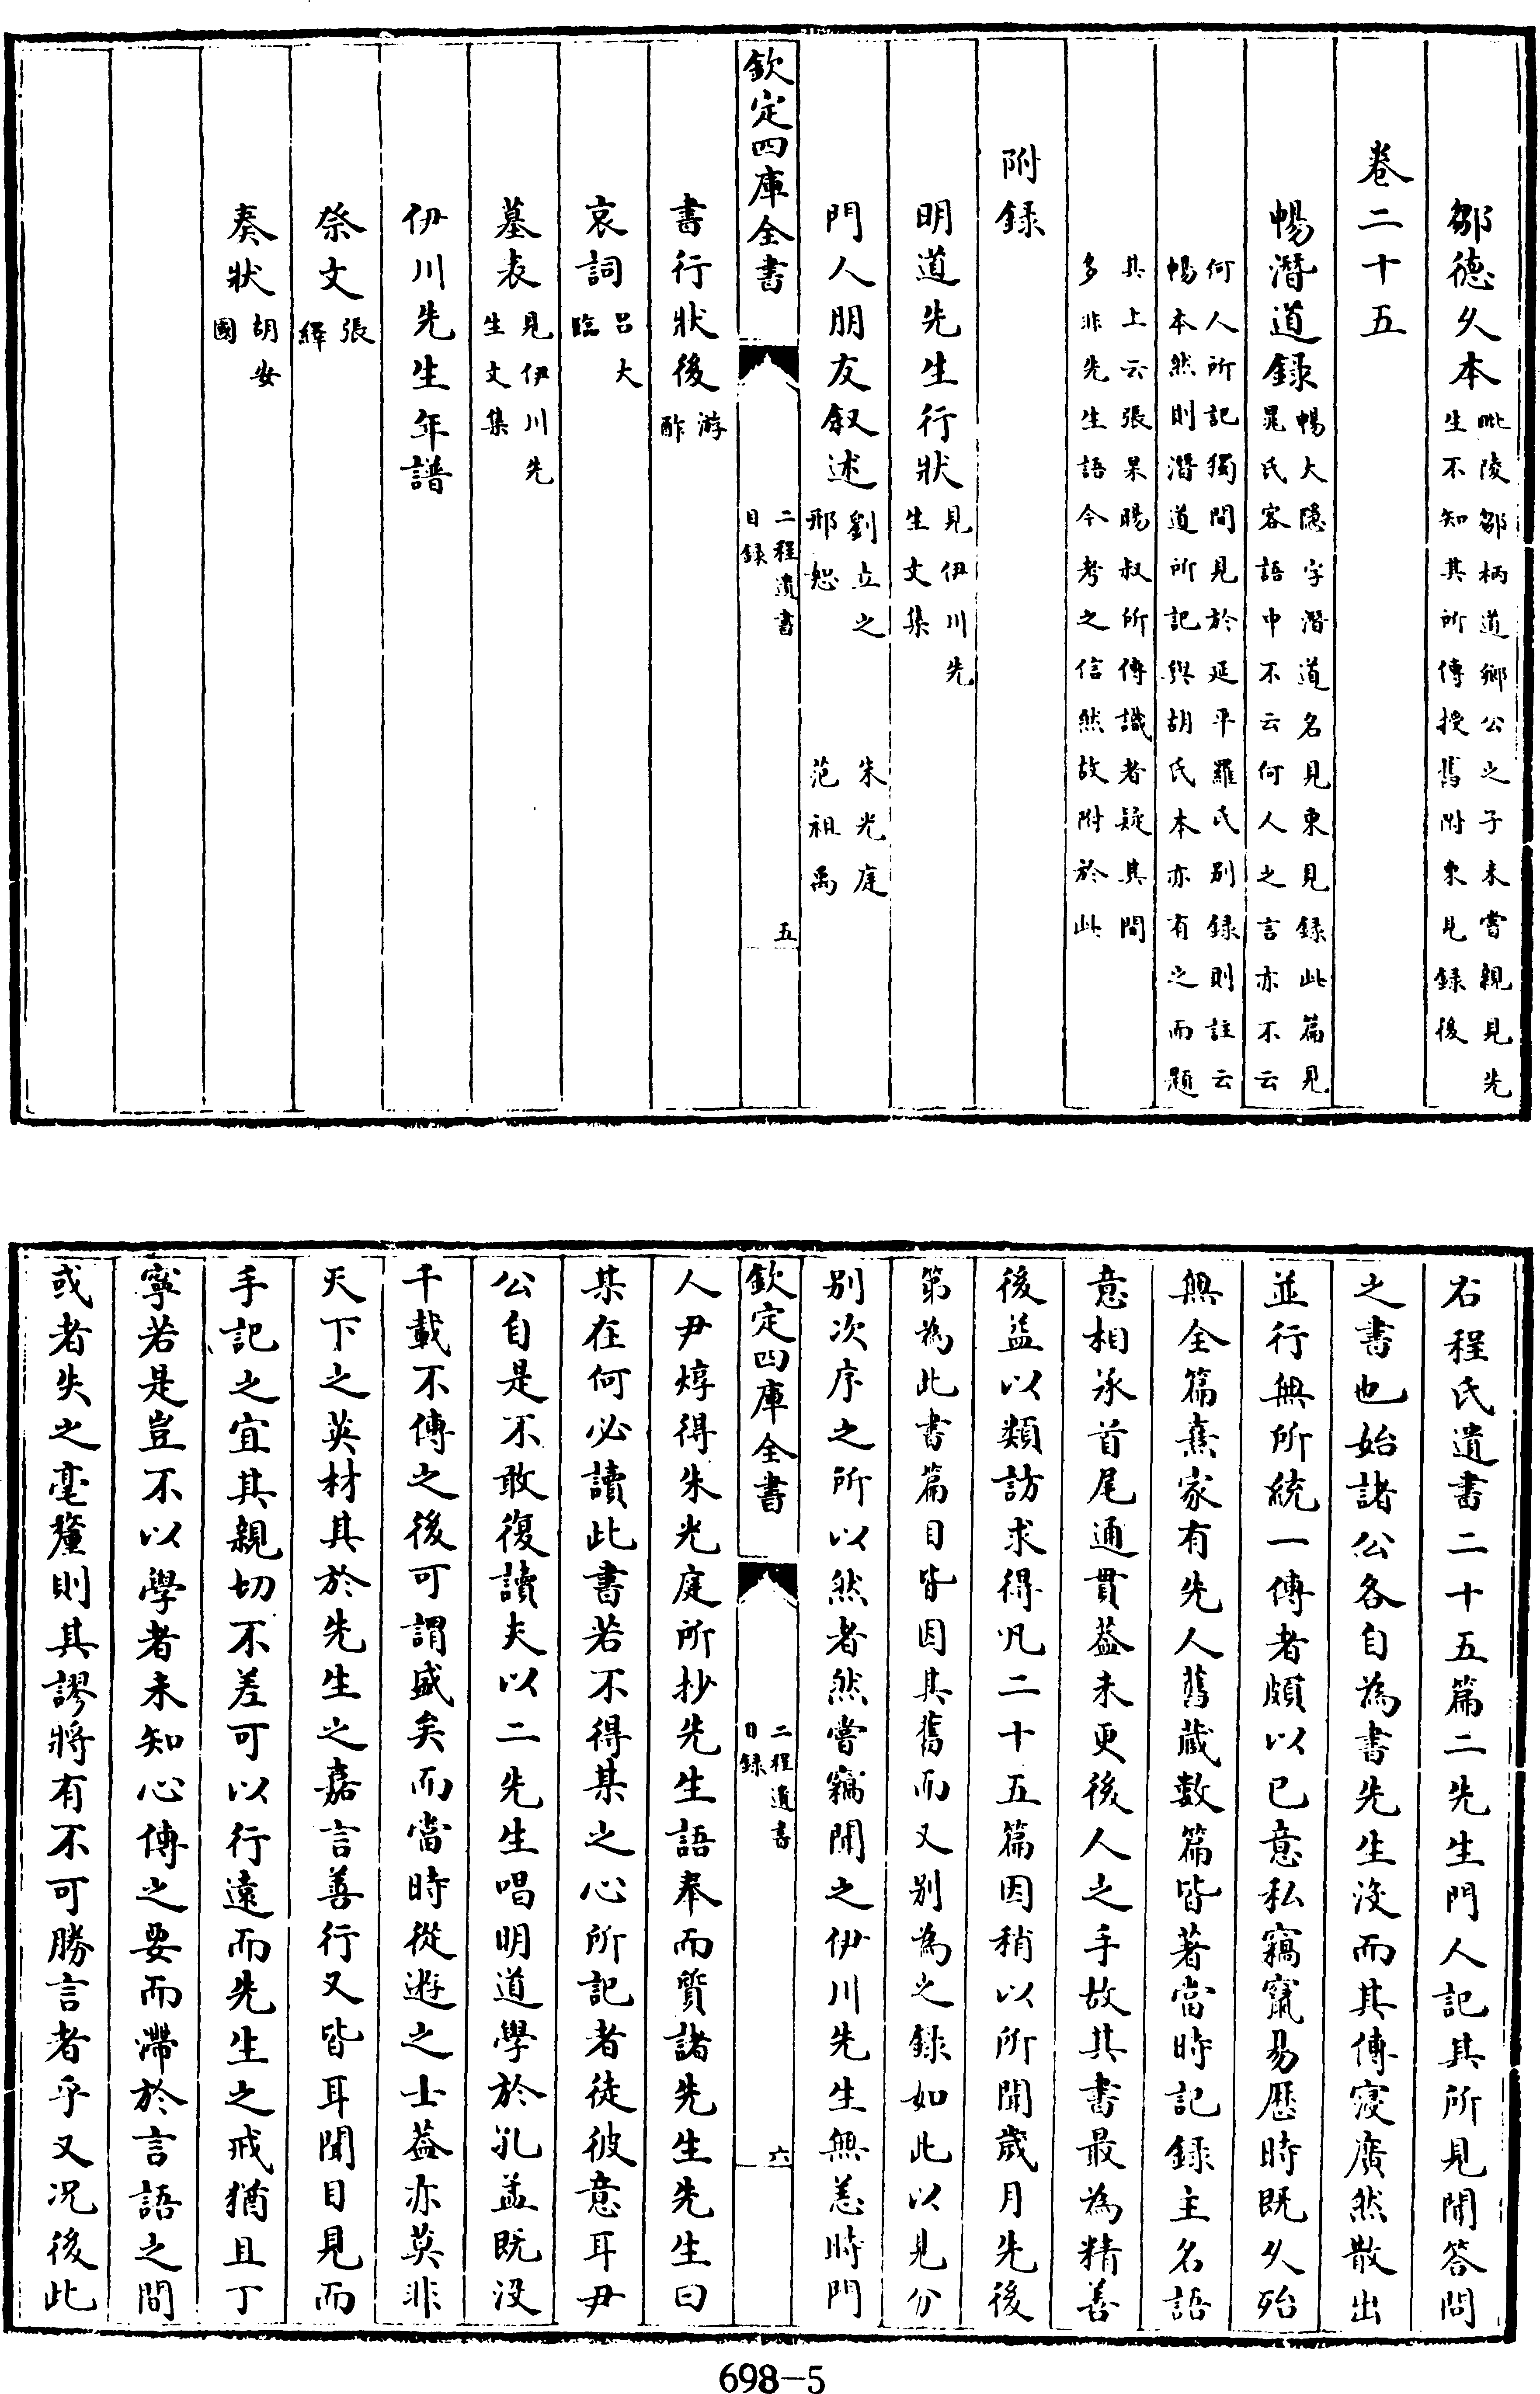 鄒德久本毗陵鄒柄道鄉公之子未嘗親見先生不知其所傳授舊附東見錄後
卷二十五
暢潛道錄暢大隱字潛道名見東見錄此篇見晁氏客語中不云何人之言亦不云
何人所記獨間見於延平羅氏別錄則註云暢本然則潛道所記與胡氏本亦有之而題
其上云張杲暘叔所傳識者疑其間多非先生語今考之信然故附於此
附錄
明道先生行狀見伊川先生文集
門人朋友叙述劉立之 朱光庭 邢恕 范祖禹
欽定四庫全書 二程遺書目錄 五
書行狀後游酢
哀詞呂大臨
墓表見伊川先生文集
伊川先生年譜
祭文張繹
奏狀胡安國
右程氏遺書二十五篇二先生門人記其所見聞答問
之書也始諸公各自為書先生没而其傳寖廣然散出
並行無所統一傳者頗以已意私竊竄易歷時既久殆
無全篇熹家有先人舊藏數篇皆著當時記錄主名語
意相承首尾通貫葢未更後人之手故其書最為精善
後益以類訪求得凡二十五篇因稍以所聞歲月先後
第為此書篇目皆因其舊而又別為之錄如此以見分
別次序之所以然者然嘗竊聞之伊川先生無恙時門
欽定四庫全書 二程遺書目錄 六
人尹焞得朱光庭所抄先生語奉而質諸先生先生曰
某在何必讀此書若不得某之心所記者徒彼意耳尹
公自是不敢復讀夫以二先生唱明道學於孔孟既没
千載不傳之後可謂盛矣而當時從遊之士葢亦莫非
天下之英材其於先生之嘉言善行又皆耳聞目見而
手記之宜其親切不差可以行遠而先生之戒猶且丁
寧若是豈不以學者未知心傳之要而滯於言語之間
或者失之毫釐則其謬將有不可勝言者乎又况後此
698-5